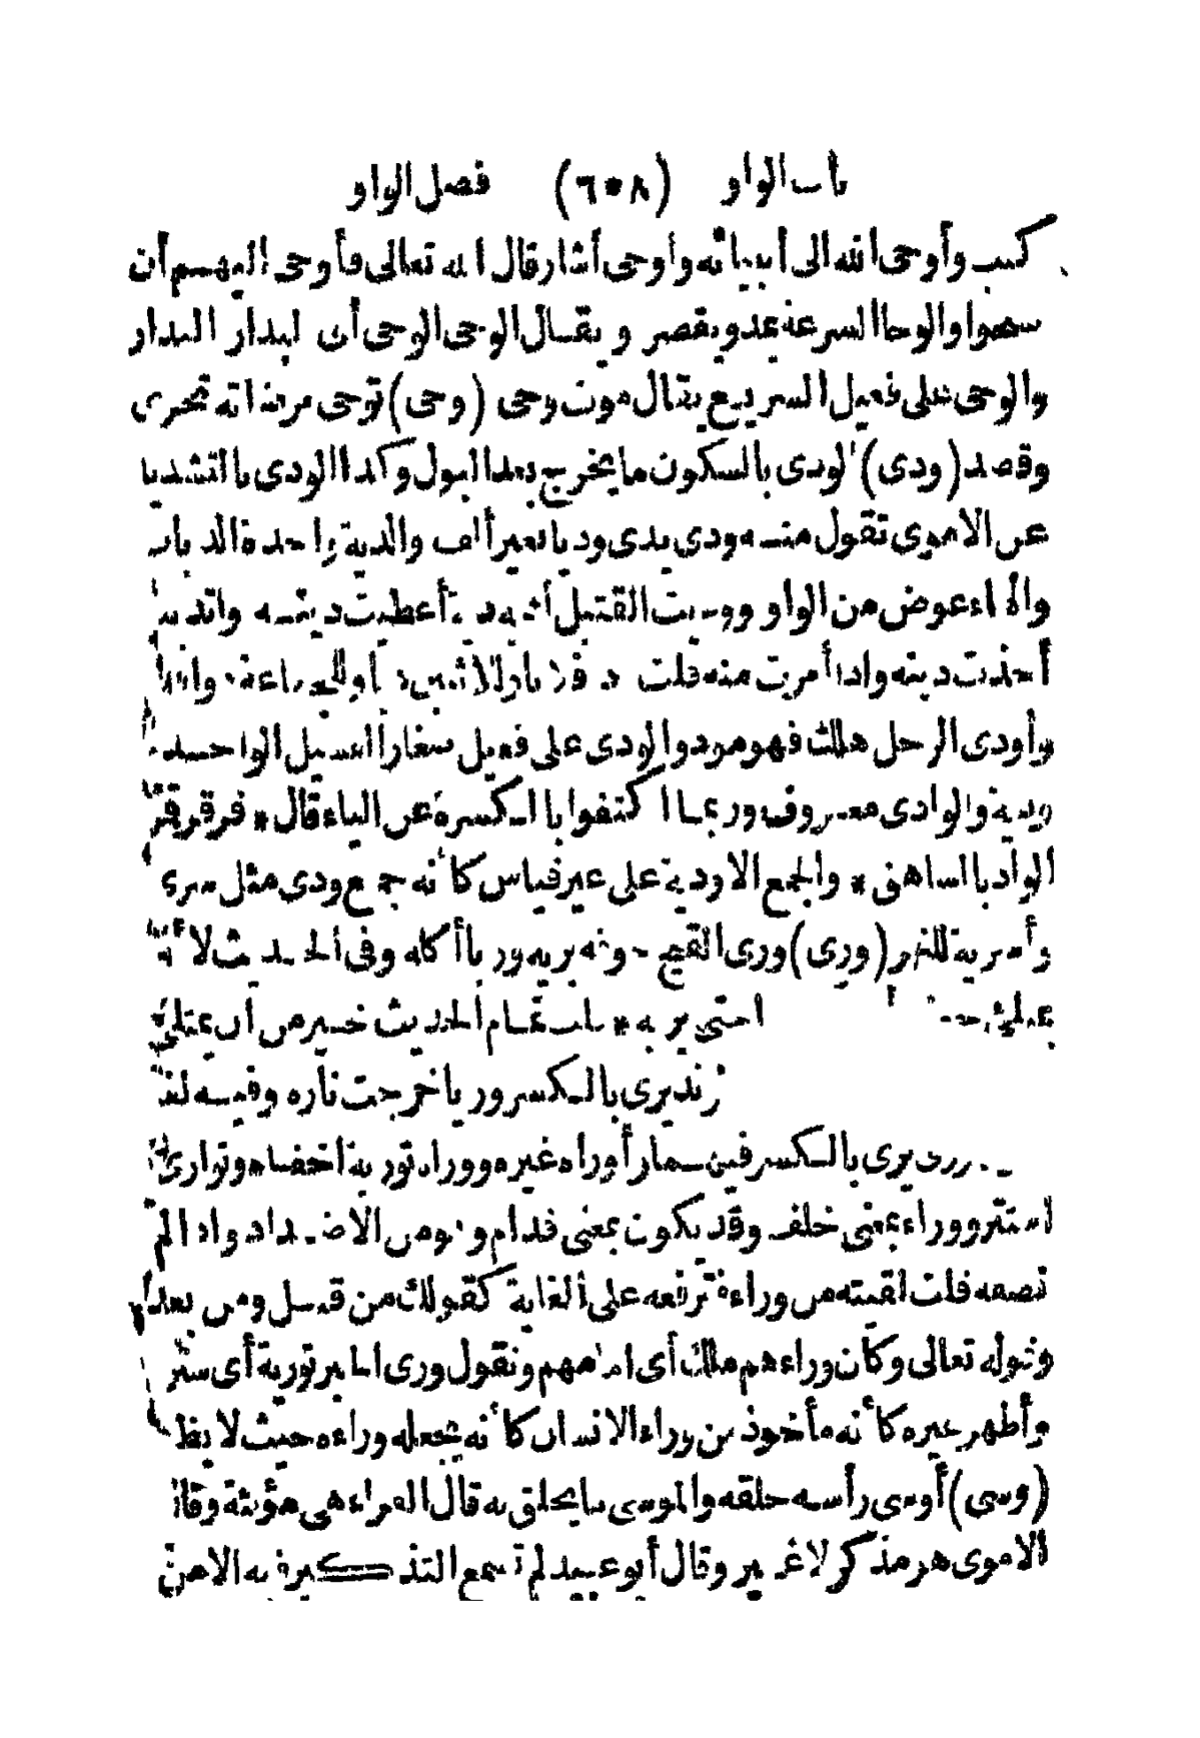 باب الواو (٦٠٨) فصل الواو
كتب وأوحى الله الى أنبيائه وأوحى أشار قال الله تعالى فأوحى اليهم أن
سبحوا والوحا السرعة يمد ويقصر ويقال الوحى الوحى أى البدار البدار
والوحى على فعيل السريع يقال موت وحى (وخى) توخى مرضاته تحرى
وقصد (ودى) الودى بالسكون ما يخرج بعد البول وكذا الودى بالتشديد
عن الاموى تقول منه ودى يدى وديا بغير ألف والدية واحدة الديات
والهاء عوض من الواو ووديت القتيل أديه دية أعطيت ديته واتديت
أخذت ديته واذا أمرت منه قلت د فلانا وللاثنين ديا وللجماعة دوا فلانا
وأودى الرجل هلك فهو مود والودى على فعيل صغار الفسيل الواحدة
ودية والوادى معروف وربما اكتفوا بالكسرة عن الياء قال * قرقر قمر
الواد بالشاهق * والجمع الاودية على غير قياس كأنه جمع ودى مثل سرى
وأسرية للنهر (ورى) ورى القيح جوفه يريه وريا أكله وفى الحديث لأن
يمتلئ حتى يريه * تمام الحديث خير من أن يمتلئ
زند يرى بالكسر وريا خرجت ناره وفيه لغة
يرى بالكسر فيهما وأوراه غيره وواراه تورية أخفاه وتوارى
استتر ووراء بمعنى خلف وقد يكون بمعنى قدام وهو من الاضداد واذا لم
تضفه قلت لقيته من وراء ترفعه على الغاية كقولك من قبل ومن بعد
وقوله تعالى وكان وراءهم ملك أى امامهم وتقول ورى الخبر تورية أى ستره
وأظهر غيره كأنه مأخوذ من وراء الانسان كأنه يجعله وراءه حيث لا يظهر
(وسى) أوسى رأسه حلقه والموسى ما يحلق به قال الفراء هى مؤنثة وقال
الاموى هو مذكر لا غير وقال أبو عبيد لم نسمع التذكير فيه الا من